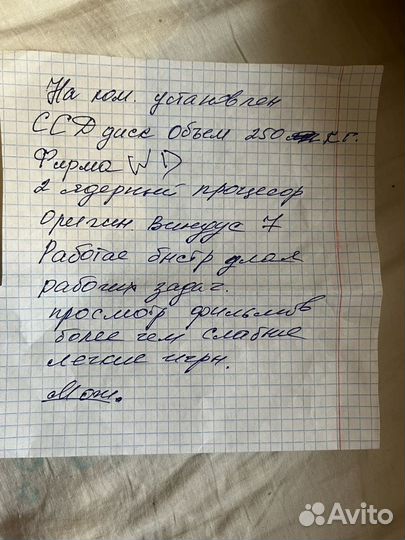 На ком. установлен
ССД диск Объем 250 кг.
Фирма WD
2 ядерный процесор
Оригин. Виндус 7
Работае быстр длая
рабочих задач.
просмотр фильмов
более чем слабые
легкие игры.
Мож.
Avito